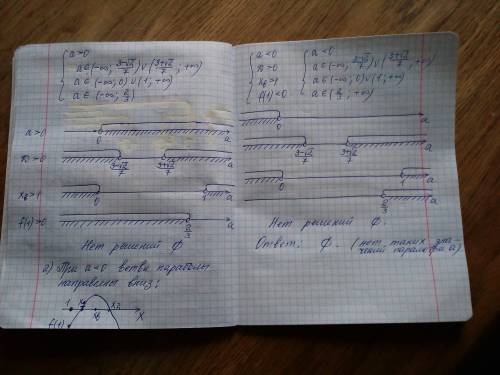 a>0
a∈(-∞; (3-√2)/7)∪((3+√2)/7; +∞)
a∈(-∞; 0)∪(1; +∞)
a∈(-∞;
a>0
0
a
D>0
(3-√2)/7
(3+√2)/7
a
x_в>1
0
1
a
f(1)>0
a
Нет решений ∅
2) При a<0 ветви параболы
направлены вниз:
1
x_в
x_2
X
f(1)
a<0
D>0
x_в>1
f(1)<0
a<0
a∈(-∞; (3-√2)/7)∪((3+√2)/7; +∞)
a∈(-∞; 0)∪(1; +∞)
+∞)
0
a
(3-√2)/7
(3+√2)/7
a
0
1
a
a
Нет решений ∅.
Ответ: ∅. (нет таких зна-
чений параметра a)